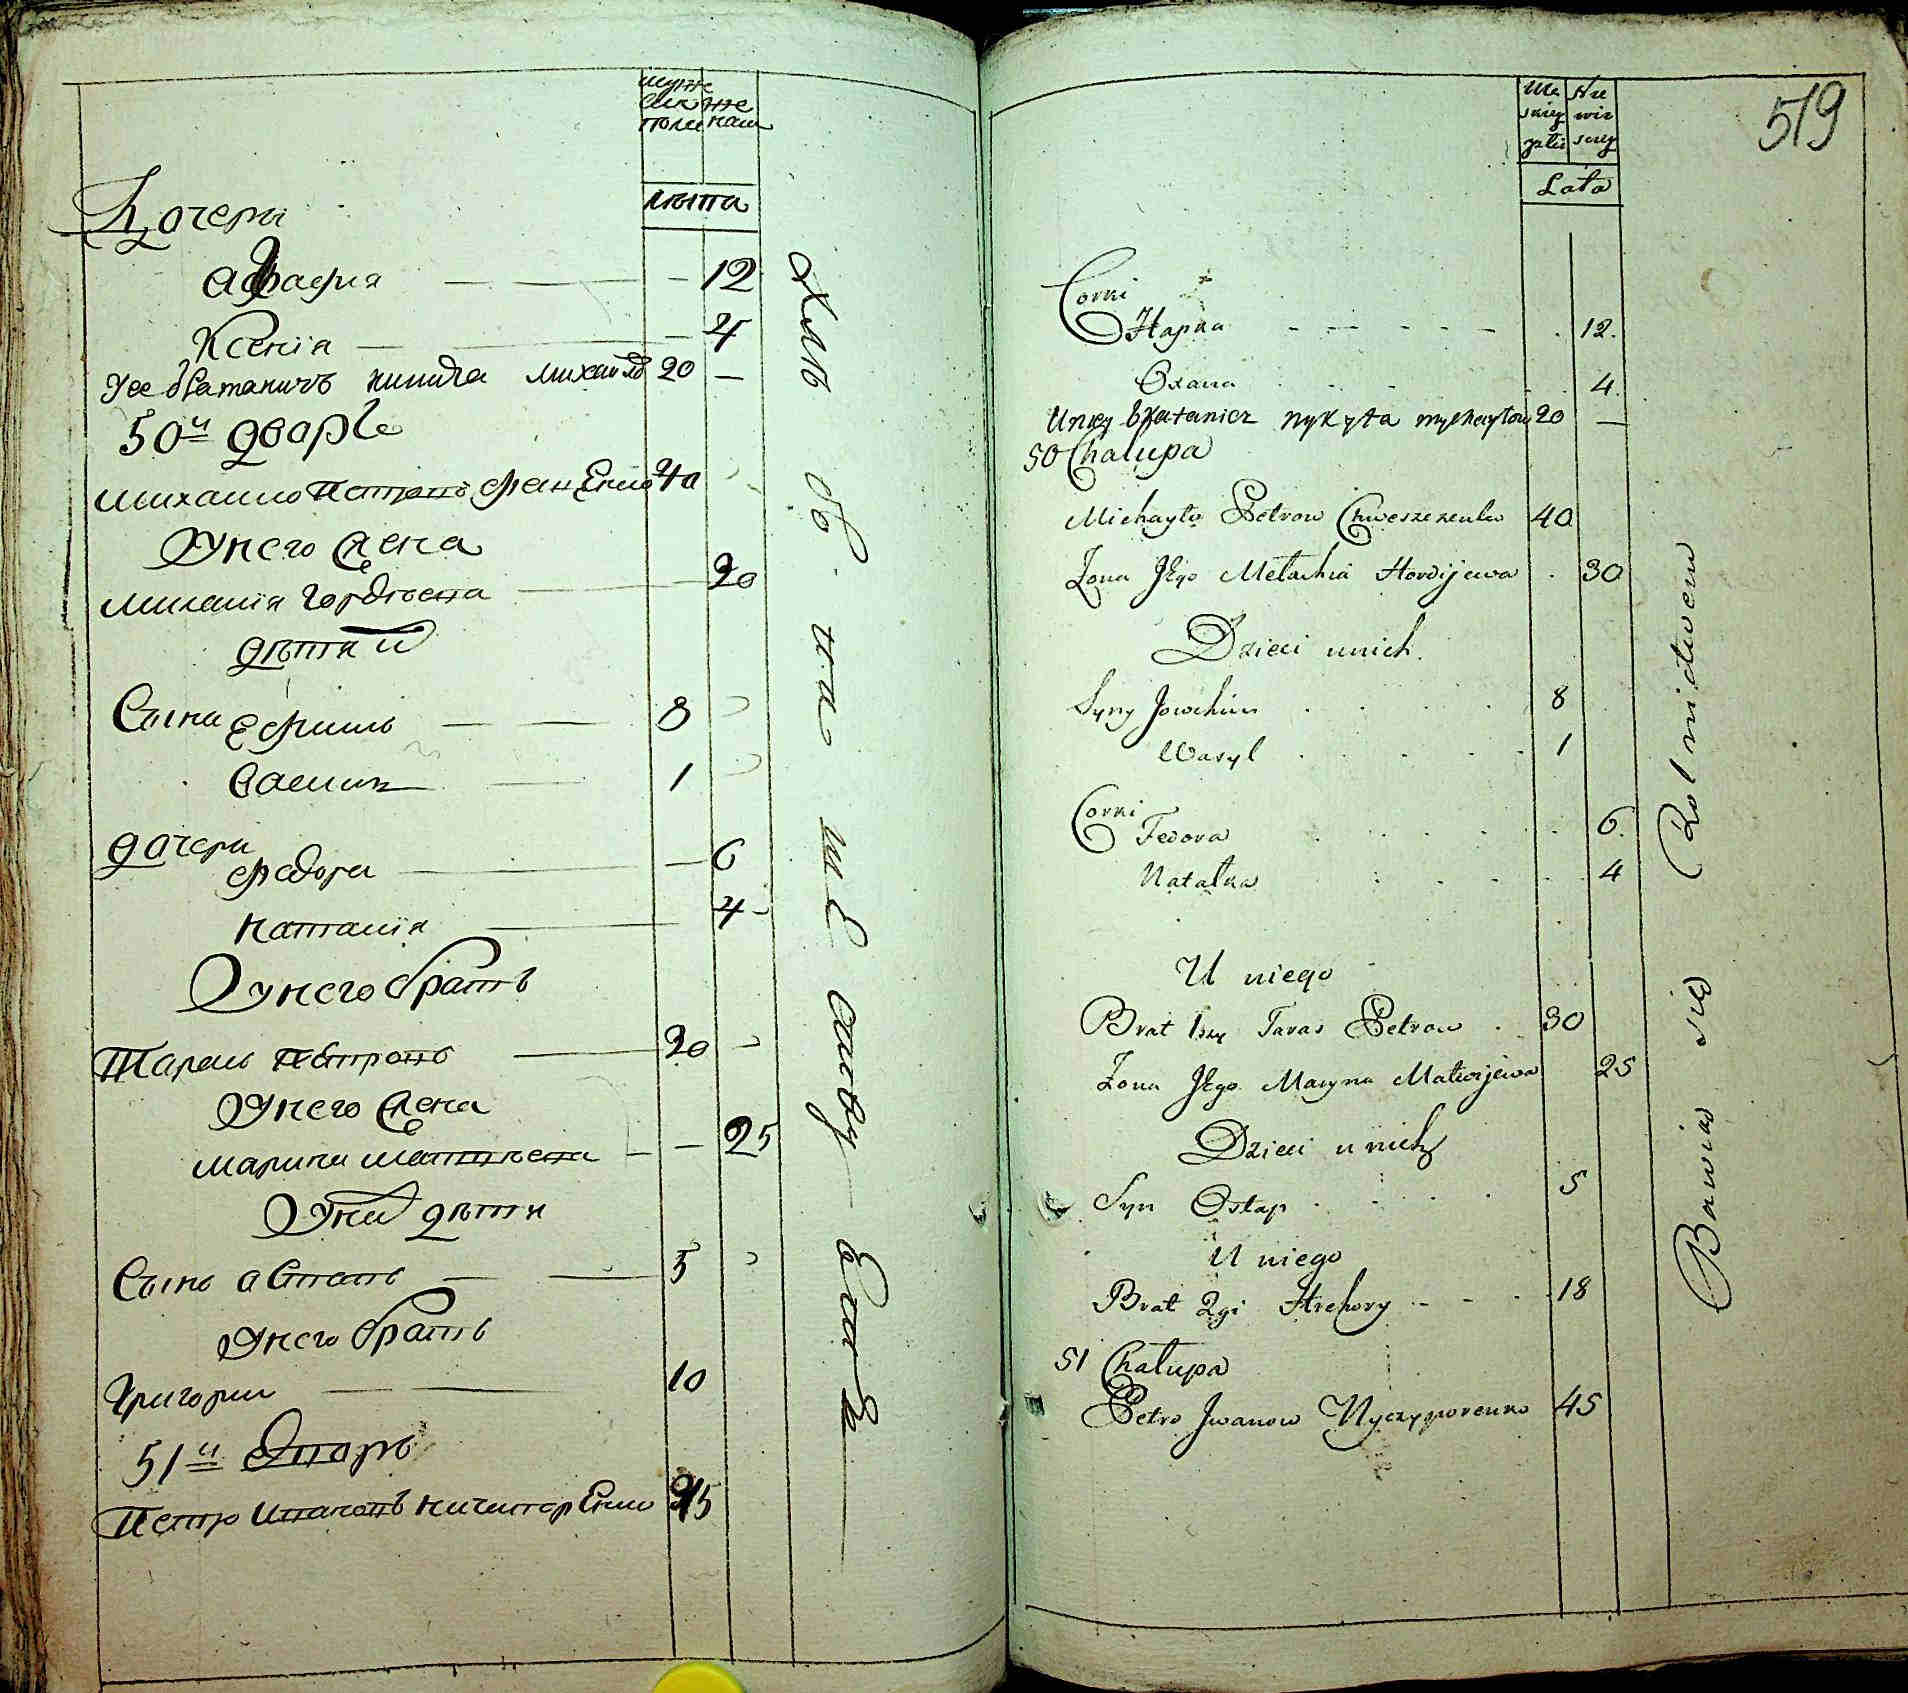 муже
ска же
полу наш
лѣта
Дочери
Агафия — 12
Ксенія — 4
Уее братаничъ никита михайлов 20 —
50й дворъ
Михайло Петровъ 40
У него жена
Миланія Гордѣева — 30
дѣти
Сына Ефимъ — 8
Василь — 1
дочери
Федора — 6
Наталія — 4
У него братъ
Тарасъ Петровъ — 30
У него жена
Марина Матвѣева — — 25
У них дѣти
Сынъ Астапъ — 5
У него братъ
Григорий — 10
51й дворъ
Петро Ивановъ Ничипоренко 45
Хлѣбопашеством
519
Me
skiey
płci
Nie
wie
sciey
Lata
Corki
Hapka 12.
Oxana 4.
Uniey bratanicz nykyta mychayłow 20 —
50 Chałupa
Michayło Petrow 40
Zona Jego Mełachia Hordijewa 30
Dzieci unich
Syny Jowchim 8
Wasyl 1
Corki
Fedora 6.
Natałka 4
U niego
Brat 1szy Taras Petrow 30
Zona Jego Maryna Matwijewa 25
Dzieci u nich
Syn Ostap 5
U niego
Brat 2gi Hrehory 18
51 Chałupa
Petro Jwanow Nyczyporenko 45
Bawią się Rolnictwem